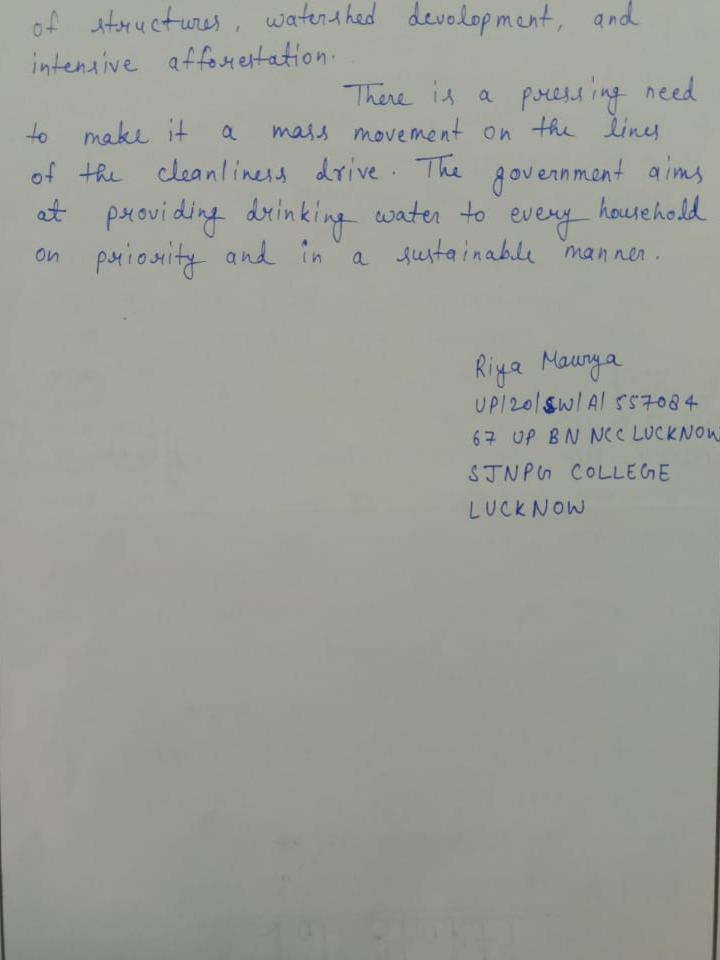 of structures, watershed devolopment, and
intensive afforestation.
There is a pressing need
to make it a mass movement on the lines
of the cleanliness drive. The government aims
at providing drinking water to every household
on priority and in a sustainable manner.
Riya Maurya
UP/20/SW/A/557084
67 UP BN NCC LUCKNOW
SJNPG COLLEGE
LUCKNOW